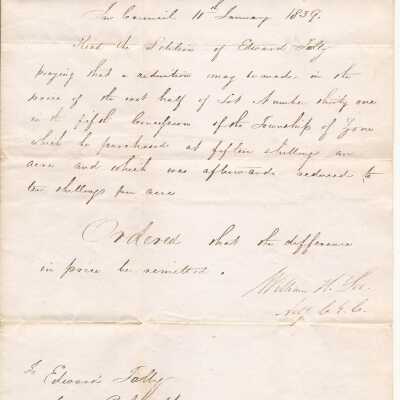 In Council 11th January 1839.
Read the Petition of Edward Tally
praying that a reduction may be made in the
price of the east half of Lot Number thirty one
in the fifth Concession of the Township of Zone
which he purchased at fifteen shillings an
acre and which was afterwards reduced to
ten shillings per acre
Ordered that the difference
in price be remitted.
William H. Lee
C. E. C.
To Edward Tally